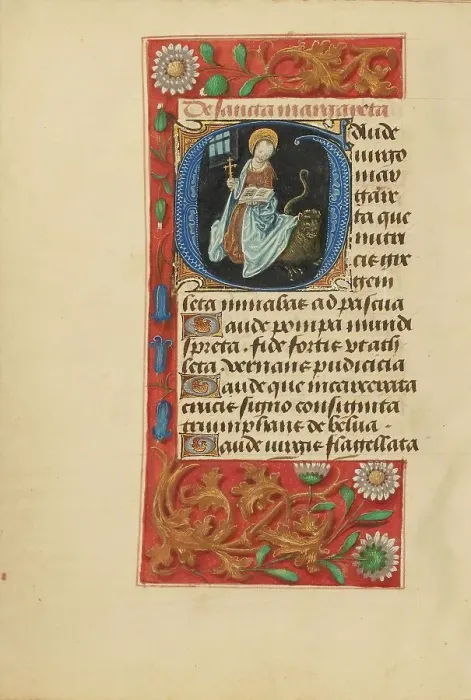 De sancta margareta
Gaude
virgo
mar
gare
ta que
nutri
cis gre
gem
leta minabas ad pascua
Gaude pompa mundi
spreta . fide fortis
leta pudicicia
Gaude que incarcerata
crucis signo consignita
triumphans de belua .
Gaude virgis flagellata